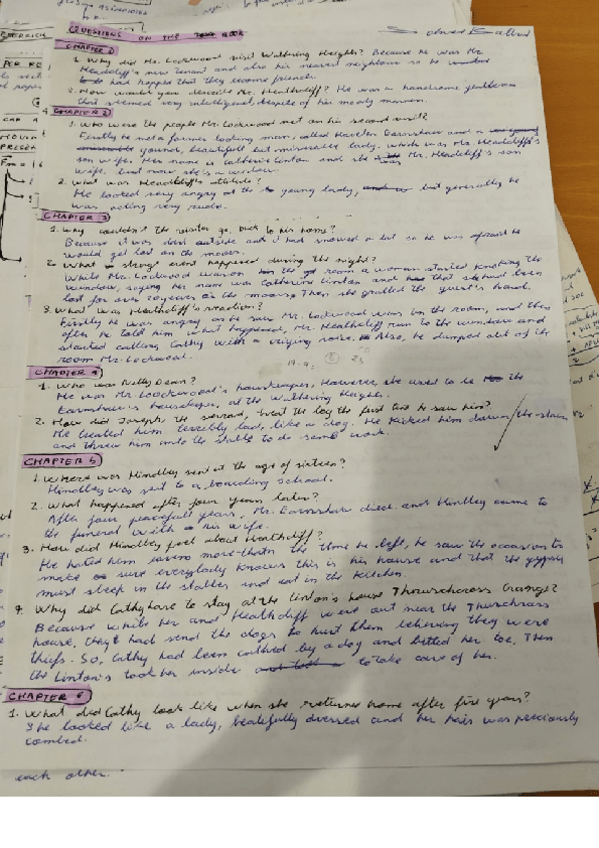 QUESTIONS ON THE BOOK
CHAPTER 1
1. Why did Mr. Lockwood visit Wuthering Heights? Because he was Mr.
Heathcliff's new tenant and also his nearest neighbour so he
had hoped that they become friends.
2. How would you describe Mr. Heathcliff? He was a handsome gentleman
that seemed very intelligent, despite of his moody manners.
CHAPTER 2
1. Who were the people Mr. Lockwood met on his second visit?
Firstly he met a farmer looking man, called Hareton Earnshaw and a
young, beautifull but miserable lady, which was Mr. Heathcliff's
son wife. Her name is Catherine Linton and she was Mr. Heathcliff's son
wife, but now she's a widow.
2. What was Heathcliff's attitude?
He looked very angry at the young lady, but generally he
was acting very rude.
CHAPTER 3
1. Why couldn't the visitor go back to his home?
Because it was dark outside and it had snowed a lot so he was afraid he
would get lost on the moors.
2. What strange event happened during the night?
While Mr. Lockwood was on the room a woman started knocking the
window, saying her name was Catherine Linton and that she had been
lost for over 20 years on the moors. Then she grabbed the guest's hand.
3. What was Heathcliff's reaction?
Firstly he was angry as he saw Mr. Lockwood was in the room, and then
after he told him what happened, Mr. Heathcliff run to the window and
started calling Cathy with a crying voice. Also, he dumped out of the
room Mr. Lockwood.
CHAPTER 4
1. Who was Nelly Dean?
He was Mr. Loockwood's housekeeper, However she used to be the
Earnshaw's housekeeper, at the Wuthering Heights.
2. How did Joseph, the servant, treat the boy the first time he saw him?
He treated him terribly bad, like a dog. He kicked him down the stairs
and threw him into the stable to do some work.
CHAPTER 5
1. Where was Hindley sent at the age of sixteen?
Hindley was sent to a boarding school.
2. What happened after four years later?
After four peacefull years, Mr. Earnshaw died and Hindley came to
the funeral with his wife.
3. How did Hindley feel about Heathcliff?
He hated him even more than the time he left, he saw the occasion to
make sure everybody knows this is his house and that the gypsy
must sleep in the stables and eat in the kitchen.
4. Why did Cathy have to stay at the Linton's house Thrushcross Grange?
Because while her and Heathcliff were out near the Thrushcross
house, they had send the dogs to hurt them believing they were
thiefs. So, Cathy had been catched by a dog and bitted her toe. Then
the Linton's took her inside to take care of her.
CHAPTER 6
1. What did Cathy look like when she returned home after five years?
She looked like a lady, beatifully dressed and her hair was preciously
combed.
each other.